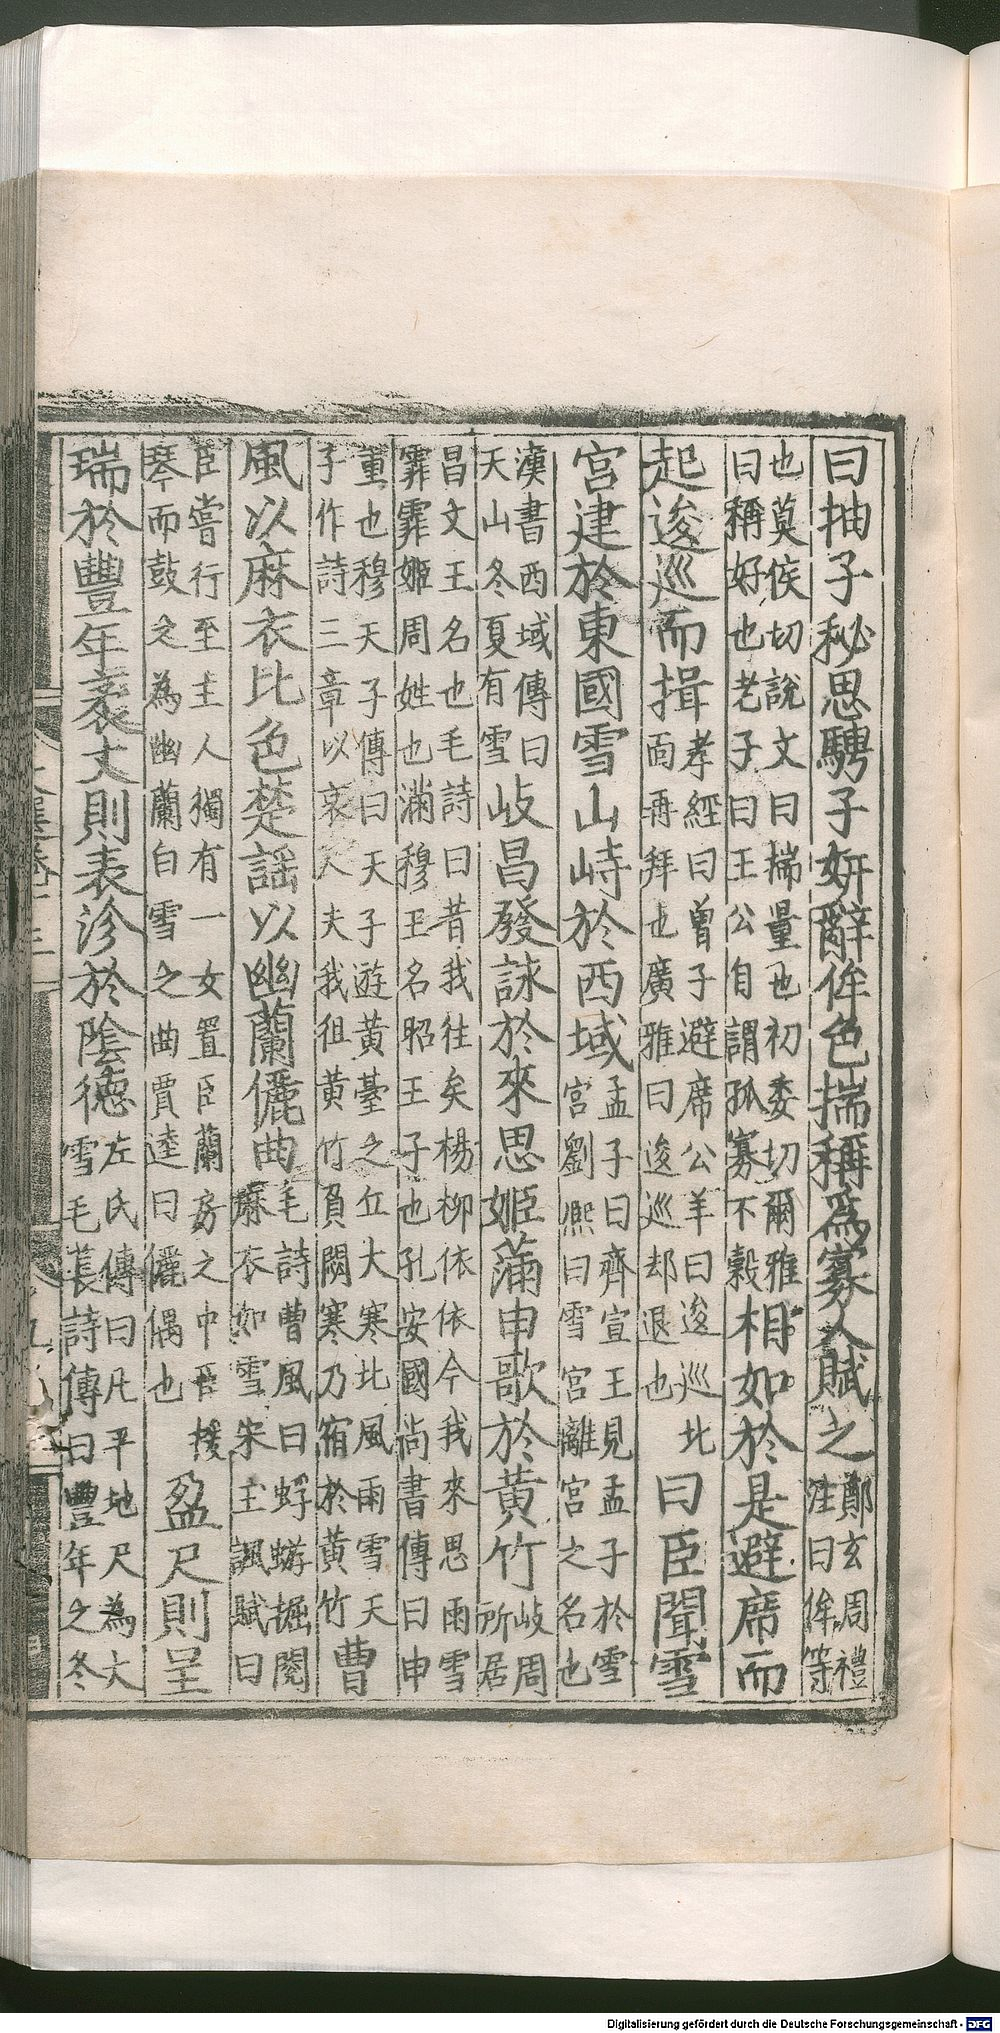 曰抽子秘思騁子妍辭侔色揣稱爲寡人賦之鄭玄周禮注曰侔等
也莫侯切說文曰揣量也初委切爾雅曰稱好也老子曰王公自謂孤寡不穀相如於是避席而
起逡巡而揖孝經曰曾子避席公羊曰逡巡北面再拜也廣雅曰逡巡却退也曰臣聞雪
宮建於東國雪山峙於西域孟子曰齊宣王見孟子於雪宮劉熙曰雪宮離宮之名也
漢書西域傳曰天山冬夏有雪岐昌發詠於來思姬蒲申歌於黄竹岐周所居
昌文王名也毛詩曰昔我往矣楊柳依依今我來思雨雪霏霏姬周姓也滿穆王名昭王子也孔安國尚書傳曰申
重也穆天子傳曰天子遊黄臺之丘大寒北風雨雪天子作詩三章以哀人夫我徂黄竹負閟寒乃宿於黄竹曹
風以麻衣比色楚謡以幽蘭儷曲毛詩曹風曰蜉蝣掘閱麻衣如雪宋玉諷賦曰
臣嘗行至主人獨有一女置臣蘭房之中臣援琴而鼓之為幽蘭白雪之曲賈逵曰儷偶也盈尺則呈
瑞於豐年袤丈則表沴於陰德左氏傳曰凡平地尺為大雪毛萇詩傳曰豐年之冬
Digitalisierung gefördert durch die Deutsche Forschungsgemeinschaft - DFG